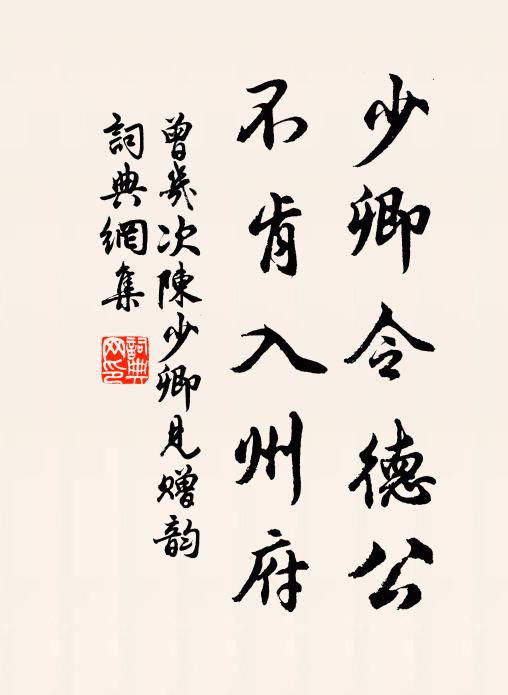 少卿令德公
不肯入州府
曾幾次陳少卿見贈韵
詞典網集
詞典網印